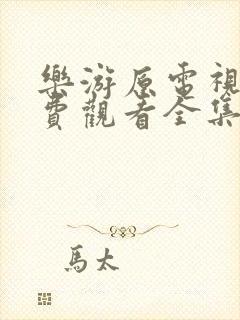 樂游原電視
費觀看全集
馬太